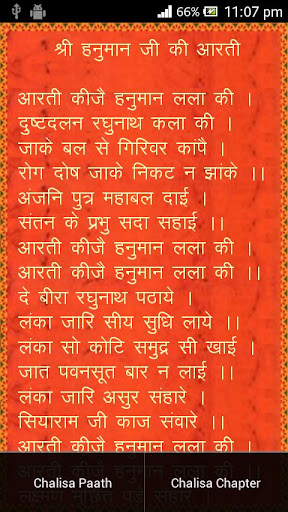 66% 11:07 pm
श्री हनुमान जी की आरती
आरती कीजै हनुमान लला की ।
दुष्टदलन रघुनाथ कला की ।
जाके बल से गिरिवर कांपै ।
रोग दोष जाके निकट न झांके ।।
अजनि पुत्र महाबल दाई ।
संतन के प्रभु सदा सहाई ।।
आरती कीजै हनुमान लला की ।
आरती कीजै हनुमान लला की ।।
दे बीरा रघुनाथ पठाये ।
लंका जारि सीय सुधि लाये ।।
लंका सो कोटि समुद्र सी खाई ।
जात पवनसूत बार न लाई ।।
लंका जारि असुर संहारे ।
सियाराम जी काज संवारे ।।
आरती कीजै हनुमान लला की ।
आरती कीजै हनुमान लला की ।।
लक्ष्मण मूर्छित पड़े सकारे ।
Chalisa Paath Chalisa Chapter